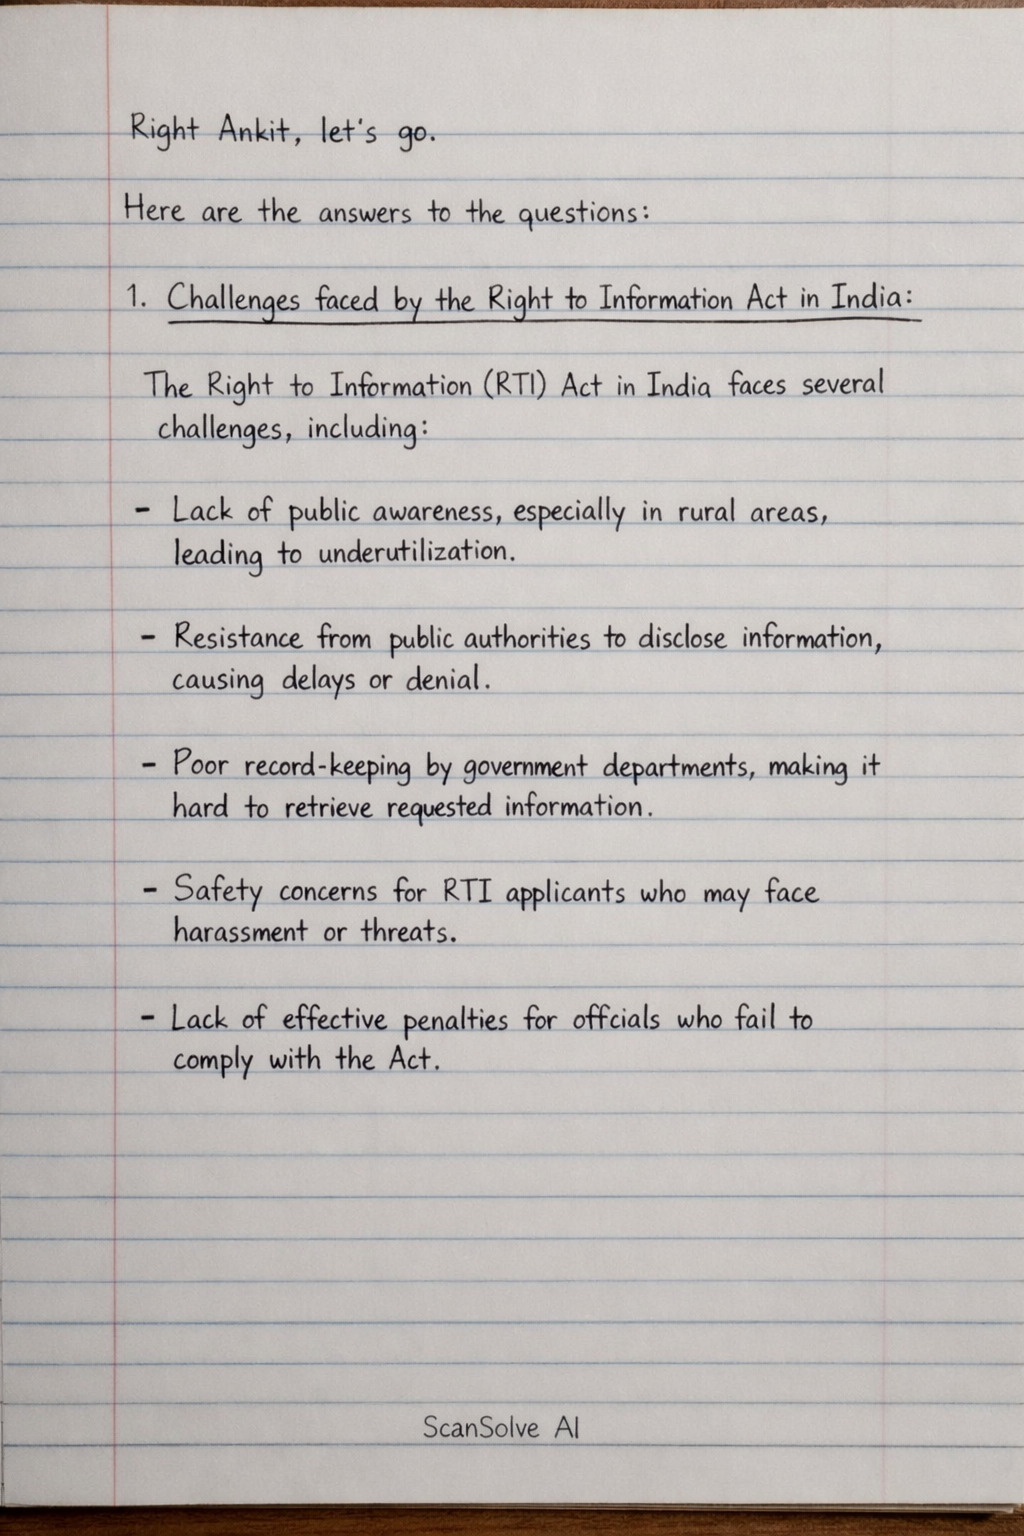 Right Ankit, let's go.
Here are the answers to the questions:
1. Challenges faced by the Right to Information Act in India:
The Right to Information (RTI) Act in India faces several
challenges, including:
- Lack of public awareness, especially in rural areas,
leading to underutilization.
- Resistance from public authorities to disclose information,
causing delays or denial.
- Poor record-keeping by government departments, making it
hard to retrieve requested information.
- Safety concerns for RTI applicants who may face
harassment or threats.
- Lack of effective penalties for offcials who fail to
comply with the Act.
ScanSolve AI